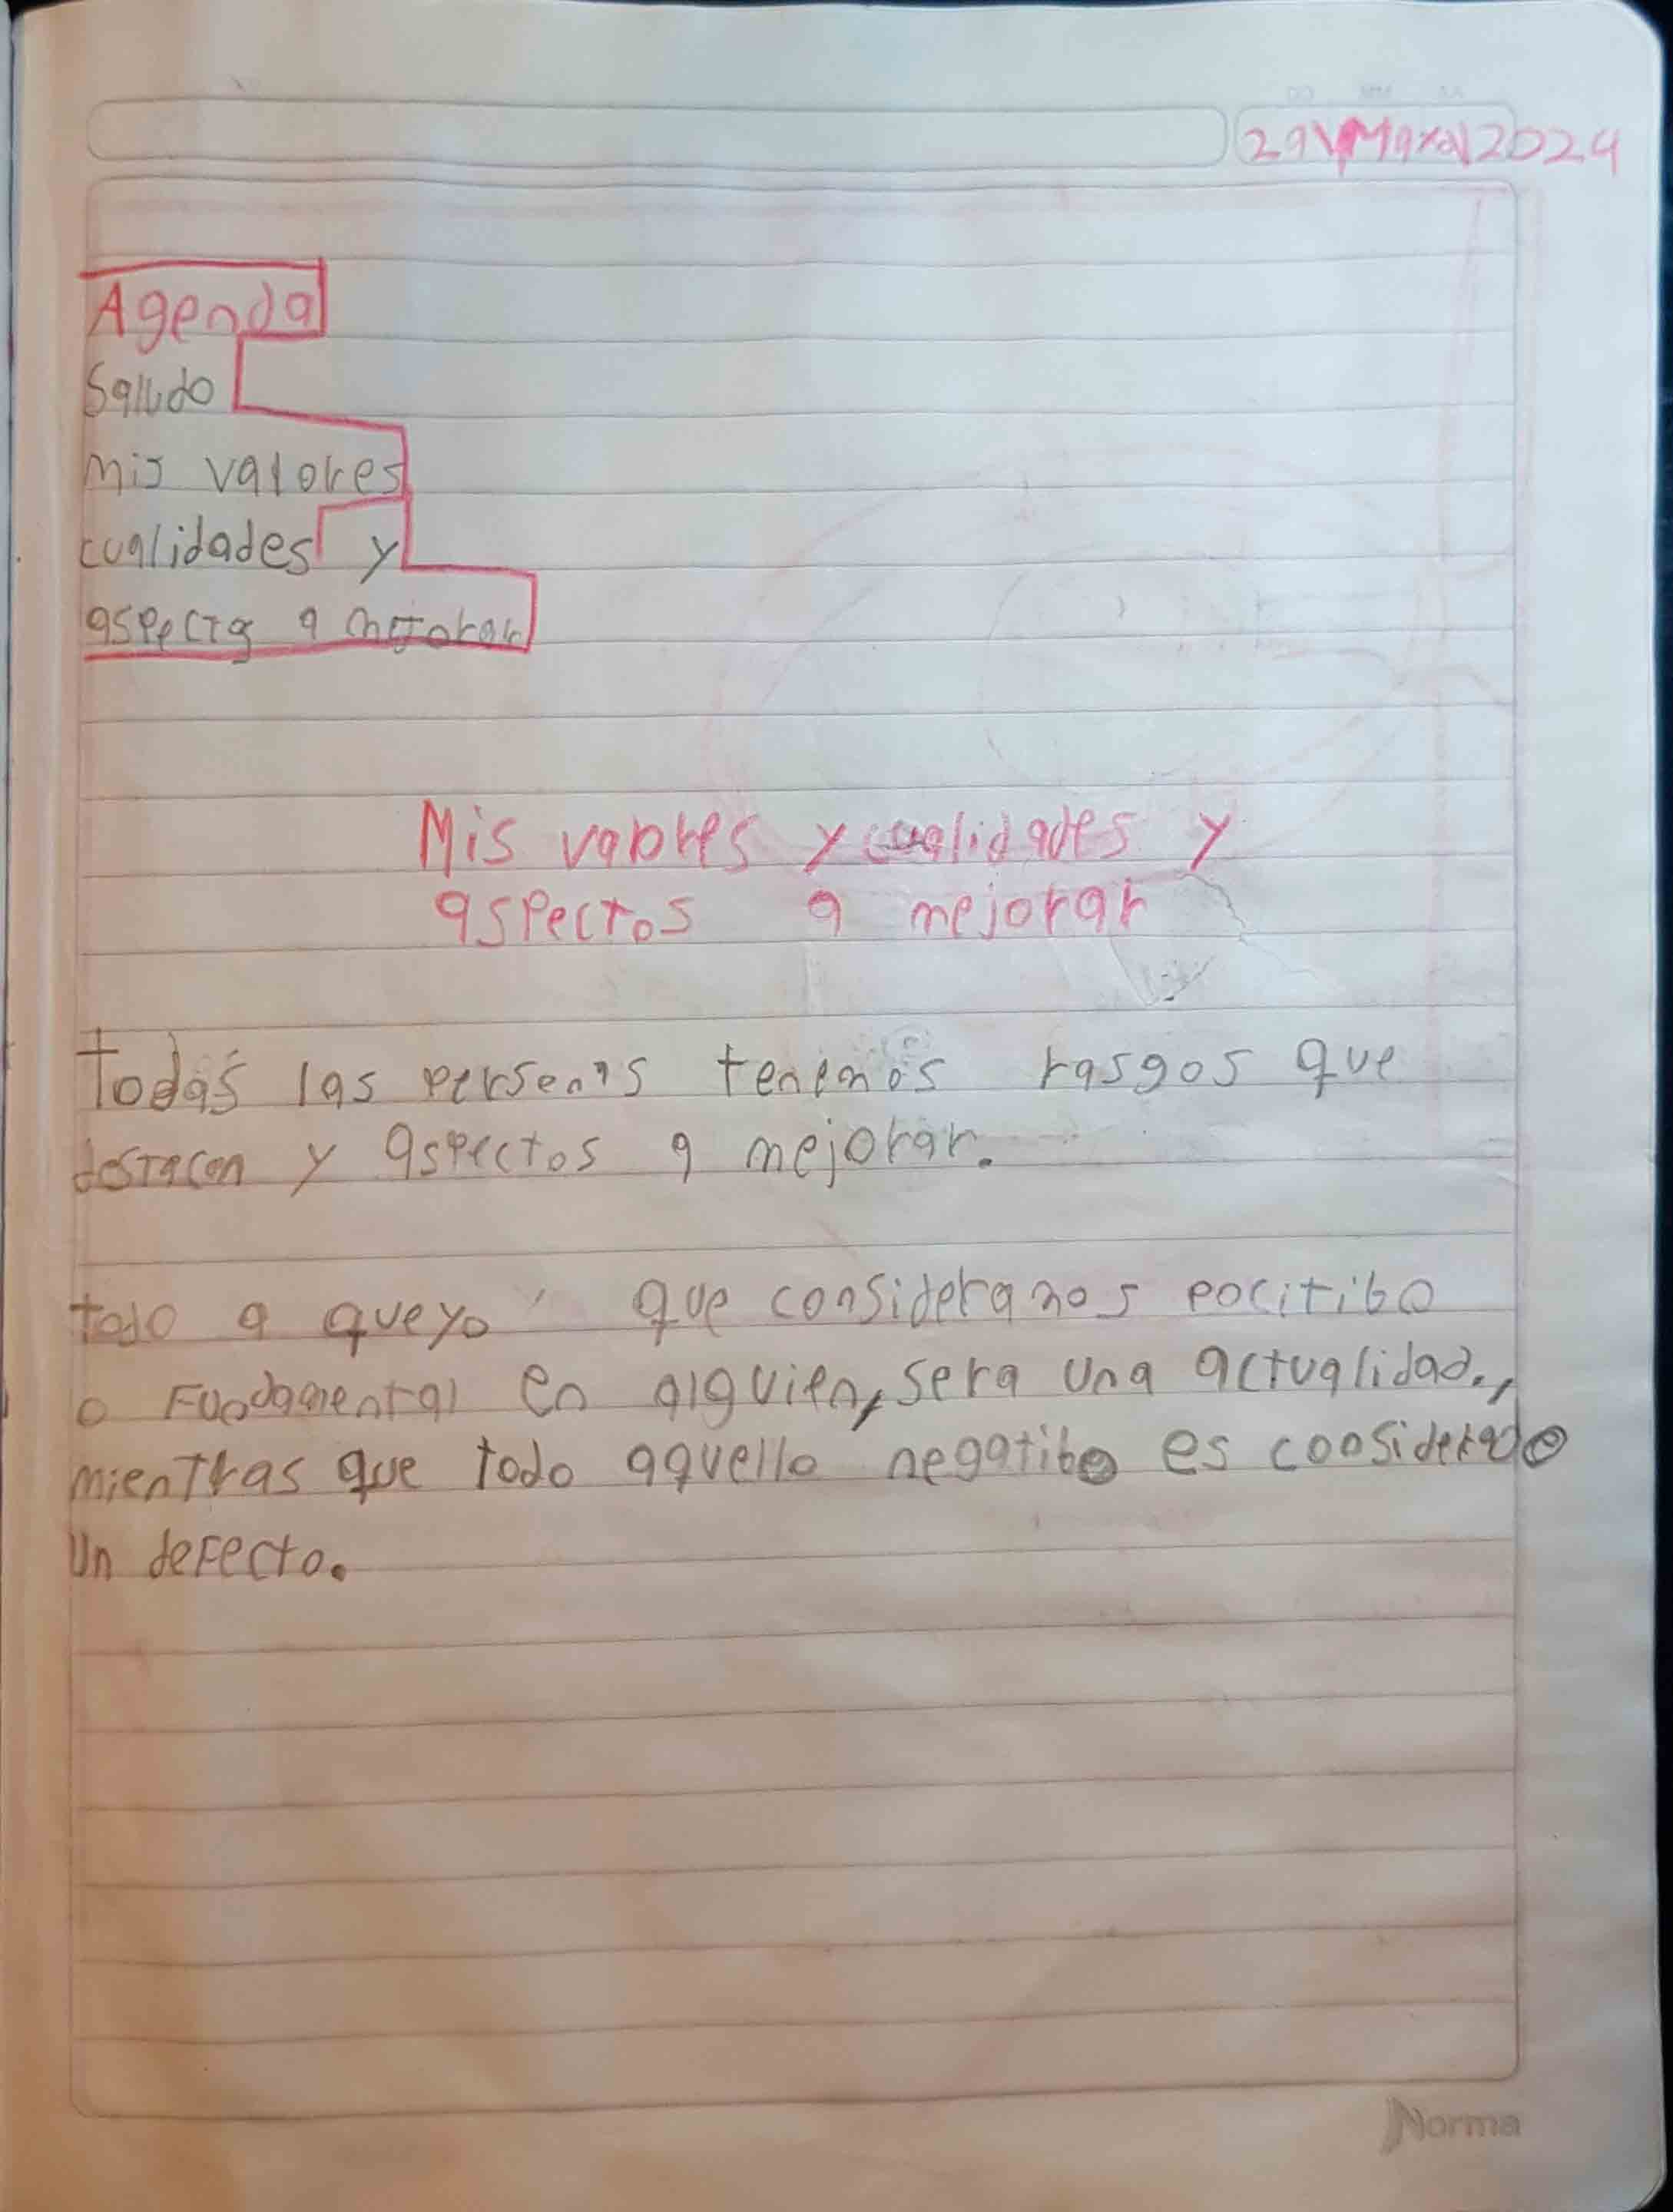 DD MM AA
29\Mayo\2024
Agenda
Saludo
mis valores
cualidades y
aspecto a mejorar
Mis valores y cualidades y
aspectos a mejorar
Todas las personas tenemos rasgos que
destacan y aspectos a mejorar.
todo a queyo que consideramos pocitibo
o Fundamental en alguien, sera una actualidad.,
mientras que todo aquello negatibo es considerado
Un defecto.
Norma